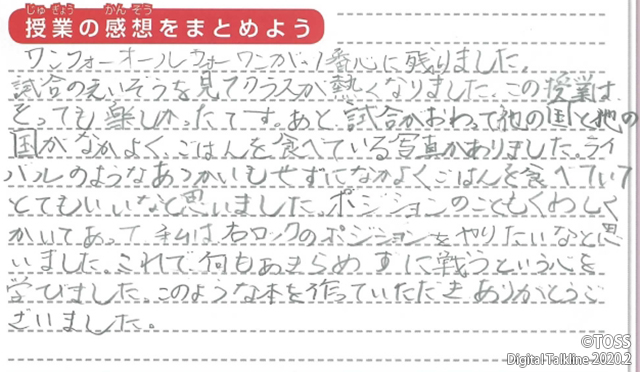 じゅぎょう かんそう
授業の感想をまとめよう
ワンフォーオールフォーワンが、1番心に残りました。
試合のえいぞうを見てクラスが熱くなりました。この授業は
とっても楽しかったです。あと、試合がおわって他の国と他の
国がなかよくごはんを食べている写真がありました。ライ
バルのようなあつかいもせずになかよくごはんを食べていて
とてもいいなと思いました。ポジションのこともくわしく
かいてあって私は右ロックのポジションをやりたいなと思
いました。これで何もあきらめずに戦うという心を
学びました。このような本を作っていただきありがとうご
ざいました。
©TOSS
Digital Talkline 2020.2